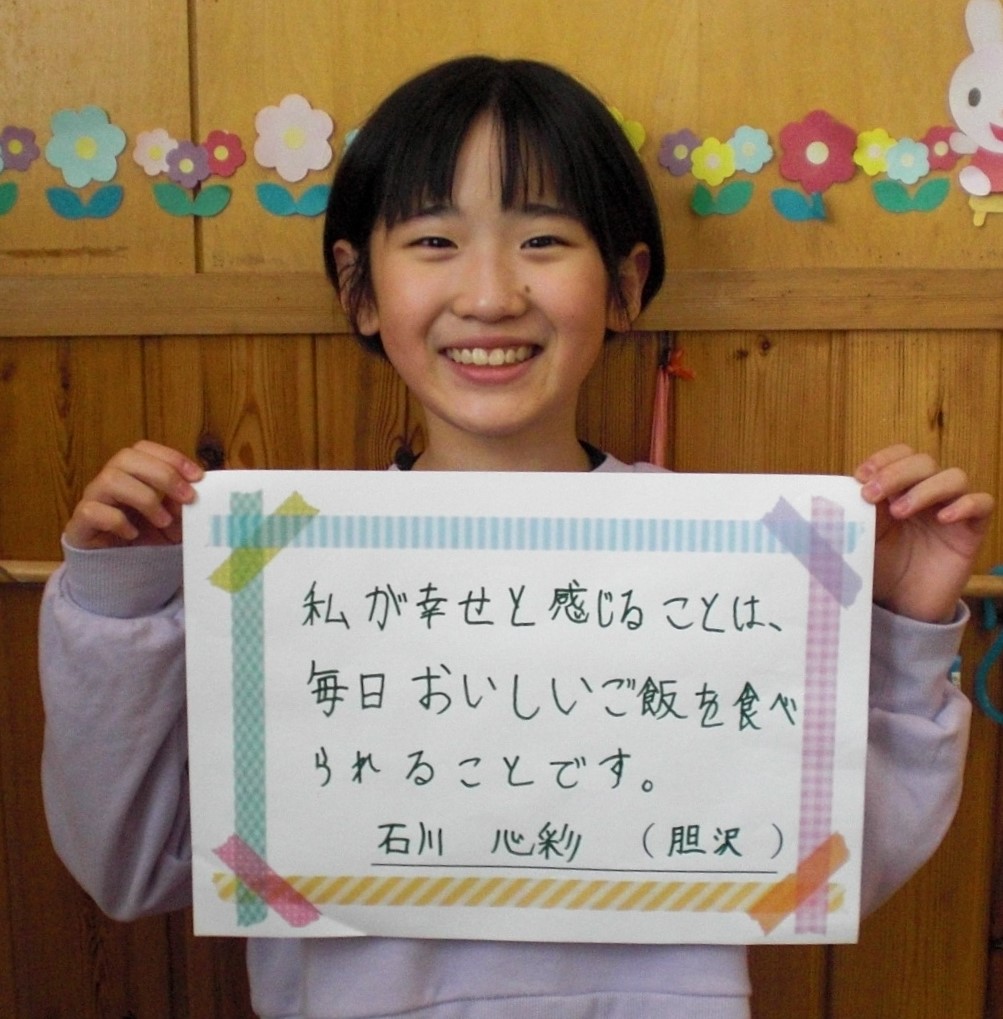 私が幸せと感じることは、
毎日おいしいご飯を食べ
られることです。
石川 心彩 (胆沢)